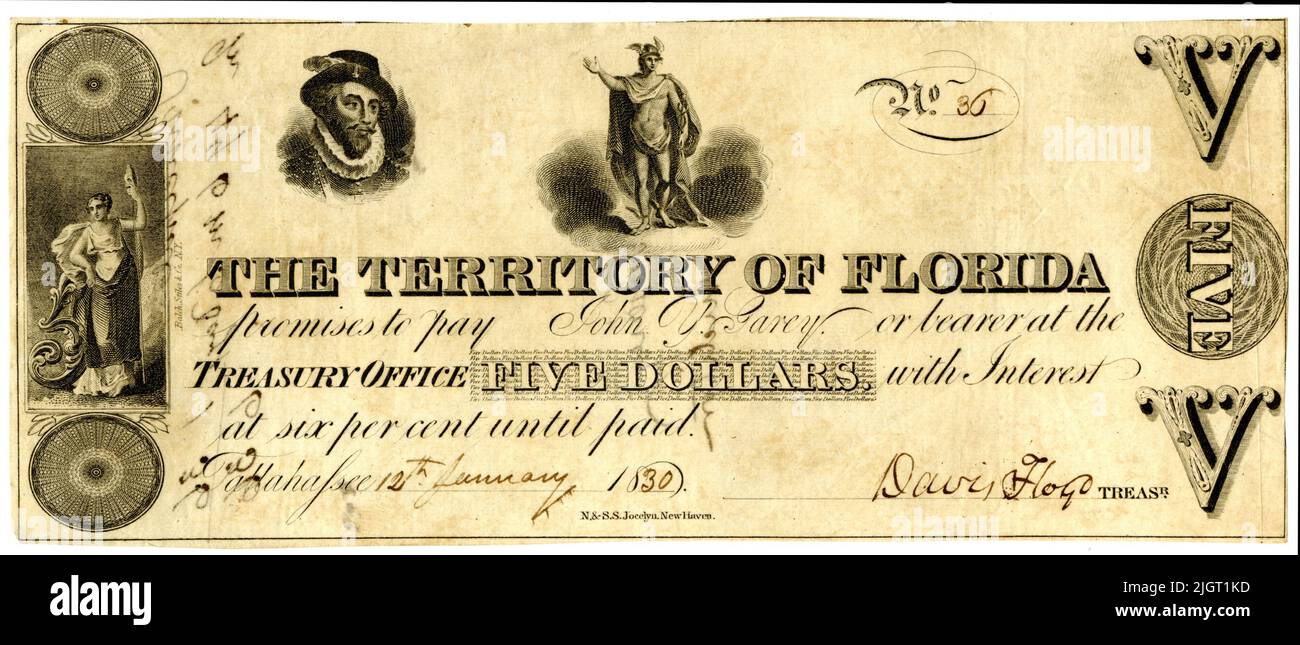 No. 36
THE TERRITORY OF FLORIDA
promises to pay John Y. Garey. or bearer at the
TREASURY OFFICE FIVE DOLLARS. with Interest
at six per cent until paid.
Tallahassee 12th January 1830.
Davis Floyd TREASR.
N. & S.S. Jocelyn, New Haven.
V
FIVE
V
alamy
Image ID: 2JGT1KD
www.alamy.com